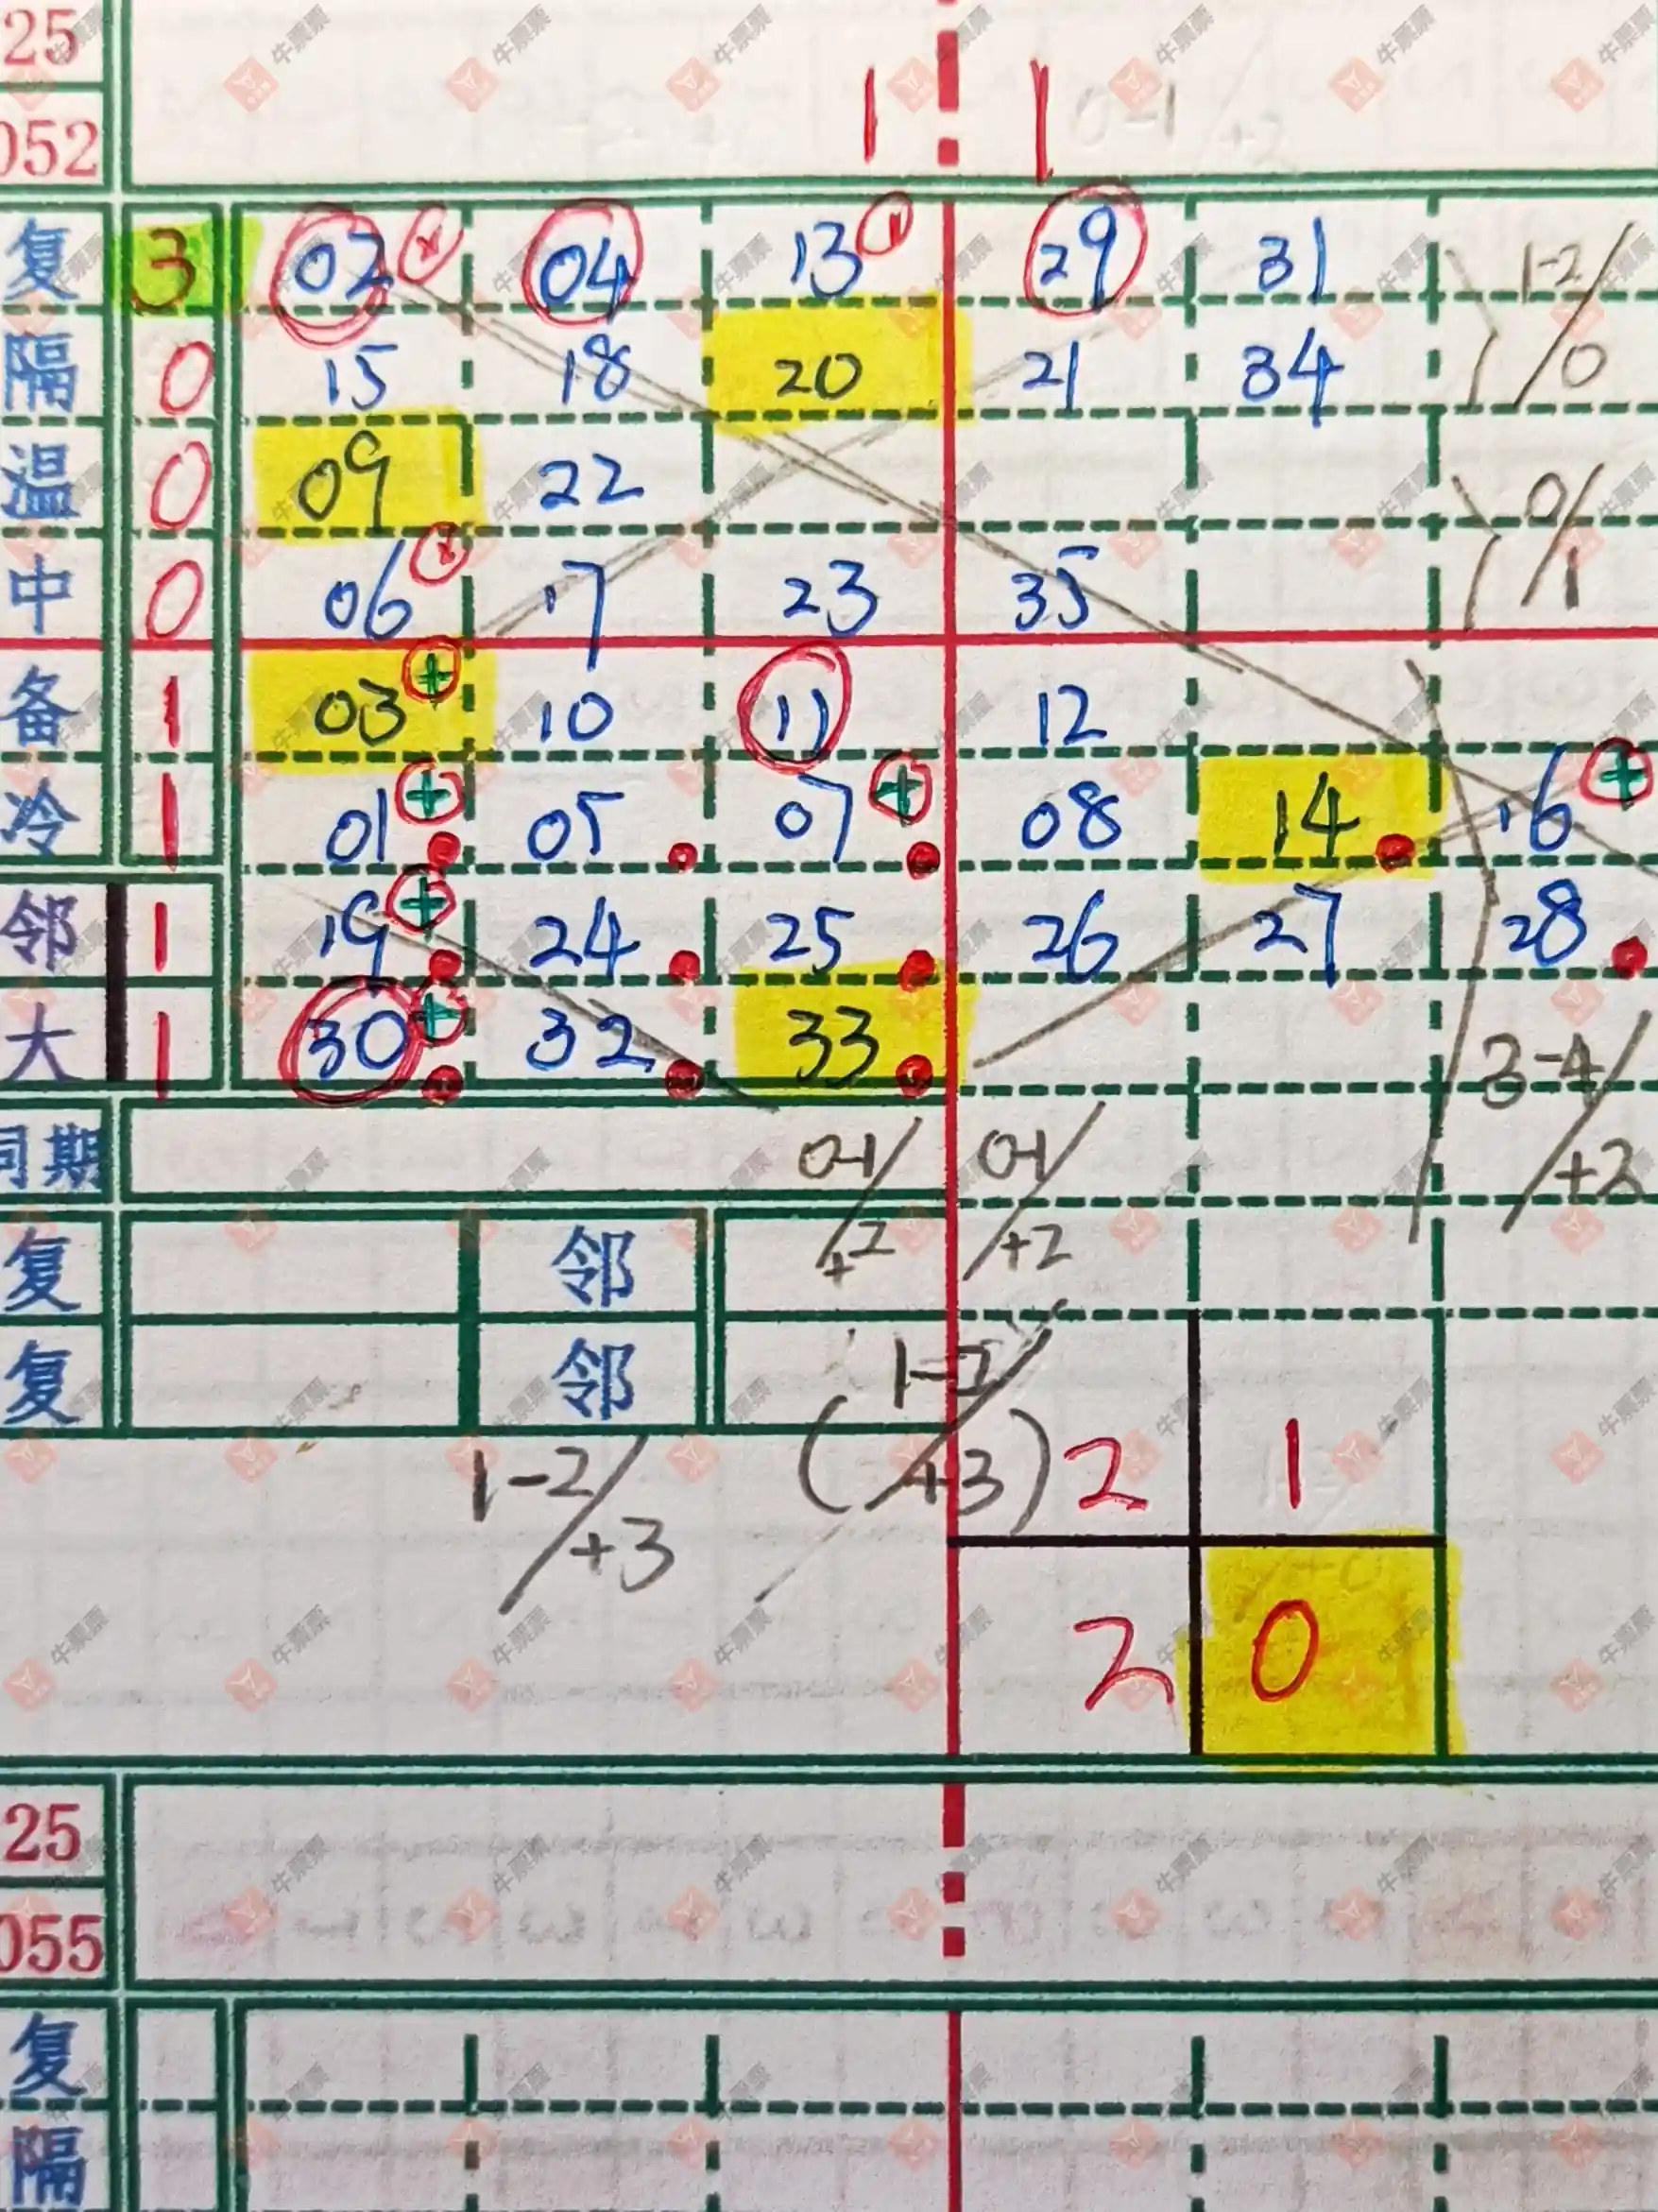 25
052
1 1 0-1 +2
复 3 02 × 04 13 11 29 31 1-2/0
隔 0 15 18 20 21 34
温 0 09 22 0/1
中 0 06 × 17 23 35
备 1 03 + 10 11 12
冷 1 01 + 05 07 + 08 14 16 +
邻 1 19 + 24 25 26 27 28
大 1 30 + 32 33 3-4/+2
同期 0-1/+2 0-1/+2
复 邻
复 邻 1-2/
1-2/+3 (+3) 2 1
2 0
25
055
复
隔
牛票票